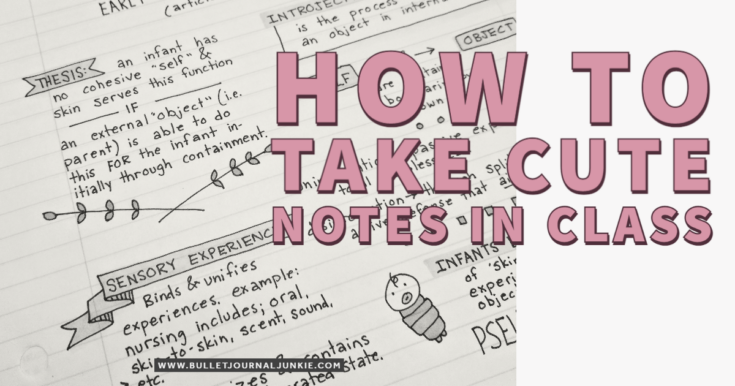 EARLY
(artic
THESIS: an infant has
no cohesive "self" &
skin serves this function
IF
an external "object" (i.e.
parent) is able to do
this FOR the infant in-
itially through containment.
INTROJE
is the process
an object in intern
OBJECT
HOW TO
TAKE CUTE
NOTES IN CLASS
SENSORY EXPERIENC
Binds & unifies
experiences. example:
nursing includes; oral,
skin-to-skin, scent, sound,
etc.
contains
state.
INFANTS
of 'ski
experi
objec
PSE
WWW.BULLETJOURNALJUNKIE.COM